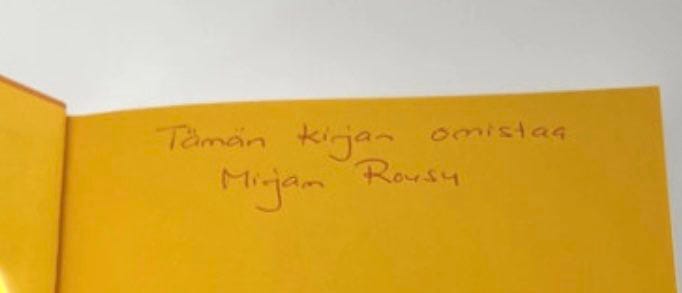 Tämän kirjan omistaa
Mirjam Rousu